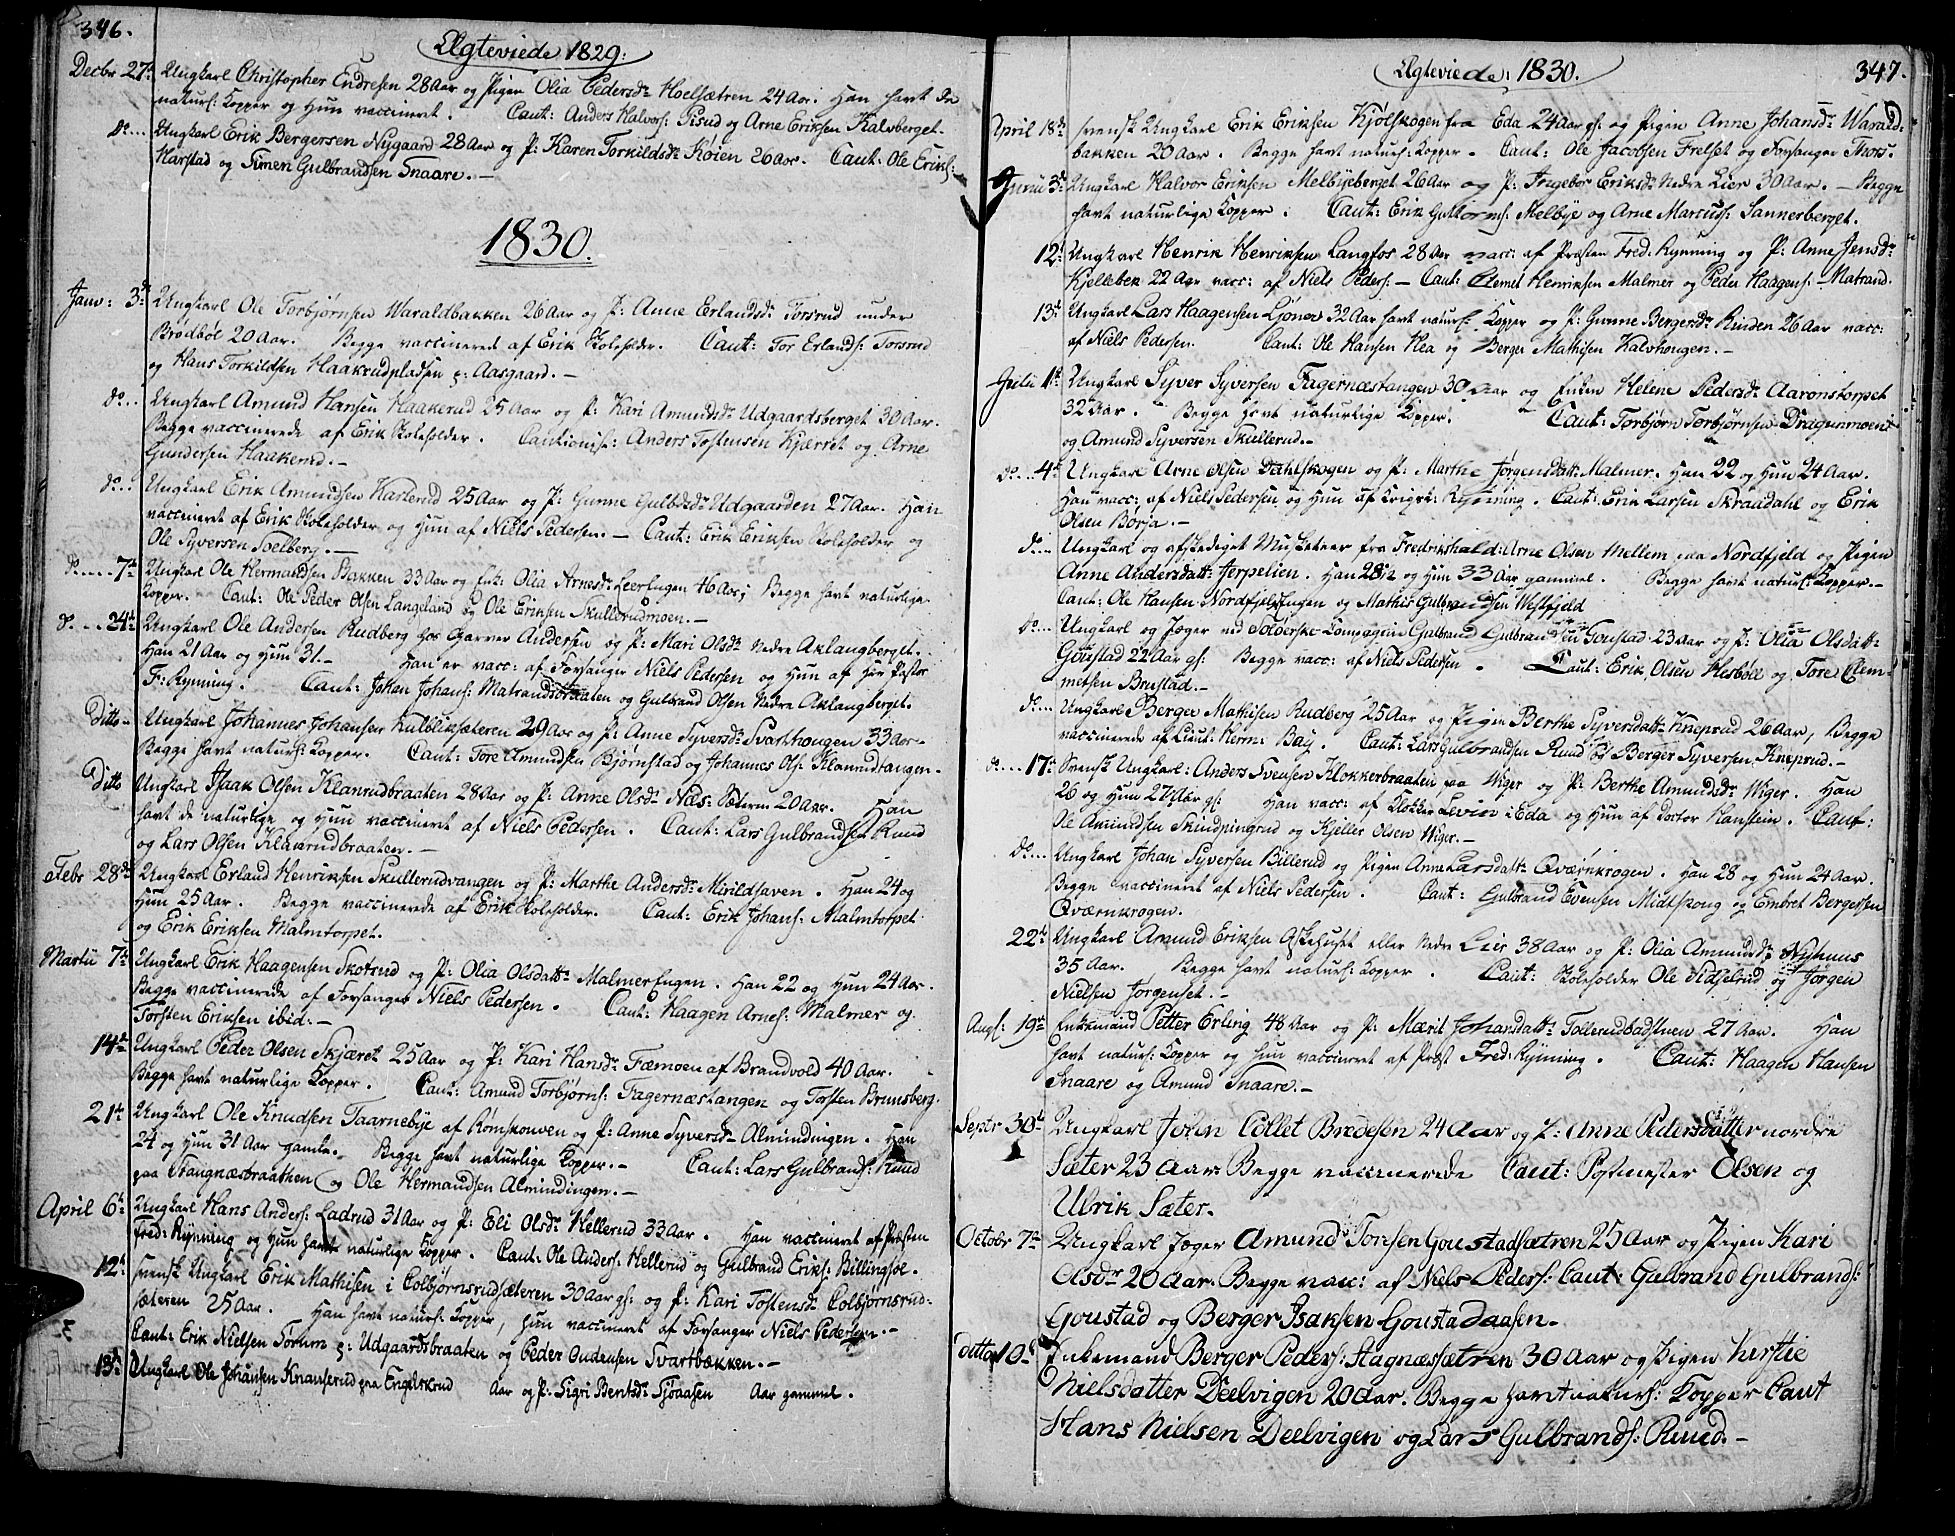 346.
Ægteviede 1829.
Decbr 27de Ungkarl Christopher Endresen 28 Aar og Pigen Olia Pedersdr Hoelsætren 24 Aar. Han havt de
naturl: Kopper og Hun vaccineret. Caut: Anders Halvors: Pisud og Arne Eriksen Kalvberget.
do... Ungkarl Erik Bergersen Nygaard 28 Aar og P: Karen Torkildsdr Køien 26 Aar. Caut: Ole Eriks:
Harstad og Simen Gulbrandsen Snaare.—
1830.
Janv: 3de Ungkarl Ole Torbjørnsen Waraldbakken 26 Aar og P: Anne Erlandsdr Torsrud under
Brødbøl 20 Aar. Begge vaccinerede af Erik Skoleholder. Caut: Tor Erlands: Torsrud
og Hans Torkildsen Haakrudpladsen p: Aasgaard.—
do... Ungkarl Amund Hansen Haakerud 25 Aar og P: Kari Amundsdr Udgaardsberget 30 Aar.
Begge vaccinerede af Erik Skoleholder. Cautionist: Anders Tostensen Kjærret og Arne
Gundersen Haakerud.—
do... Ungkarl Erik Amundsen Harterud 25 Aar og P: Gunne Gulbdsdr Udgaarden 27 Aar. Han
vaccineret af Erik Skoleholder og Hun af Niels Pedersen.— Caut: Erik Eriksen Skoleholder og
Ole Syversen Soelberg.—
do.... 7de Ungkarl Ole Hermandsen Bakken 33 Aar og Enk: Olia Arnesdr LeerEngen 46 Aar; Begge havt naturlige
Kopper. Caut: Ole Peder Olsen Langeland og Ole Eriksen Skullerudmoen.—
do.... 24de Ungkarl Ole Andersen Rudberg hos Garver Andersen og P: Mari Olsdr Nedre Aklangberget.
Han 21 Aar og Hun 31.— Han er vacc: af Forsanger Niels Pedersen og Hun af Hr. Pastor
Fr: Rynning. Caut: Johan Johans: Matrandsbraaten og Gulbrand Olsen Nedre Aklangberget.
Ditto— Ungkarl Johannes Johansen Kulbliksæteren 29 Aar og P: Anne Syversdr Svarthougen 33 Aar.
Begge havt naturl: Kopper. Caut: Tore Amundsen Bjørnstad og Johannes Ols: Klanrudtangen.
Ditto Ungkarl Isaak Olsen Klanrudbraaten 28 Aar og P: Anne Olsdr Næs: Sæteren 20 Aar. Han
havt de naturlige og Hun vaccineret af Niels Pedersen. Caut: Lars Gulbrandsen Ruud
og Lars Olsen Klanrudbraaten.—
Febr 28de Ungkarl Erland Henriksen Skullerudvangen og P: Marthe Andersdr Mirildhaven. Han 24 og
Hun 25 Aar. Begge vaccinerede af Erik Skoleholder. Caut: Erik Johans: Malmtorpet
og Erik Eriksen Malmtorpet.
Martii 7de Ungkarl Erik Haagensen Skotrud og P: Olia Olsdattr MalmerEngen. Han 22 og Hun 24 Aar.
Begge vaccinerede af Forsanger Niels Pedersen. Caut: Haagen Arnes: Malmer og
Torsten Eriksen ibid:—
14de Ungkarl Peder Olsen Skjæret 25 Aar og P: Kari Hansdr Fæmoen af Brandvold 40 Aar.
Begge havt naturlige Kopper. Caut: Amund Torbjørns: Fagernæstangen og Torsten Brunsberg.
21de Ungkarl Ole Knudsen Taarnebye af Rømskouven og P: Anne Syversdr Almindingen. Han
24 og Hun 31 Aar gamle. Begge havt naturlige Kopper.— Caut: Lars Gulbrands: Ruud
paa Stangnæsbraathen og Ole Hermandsen Almindingen.—
April 6te Ungkarl Hans Anders: Ladrud 31 Aar og P: Eli Olsdr Hellerud 33 Aar. Han vaccineret af Præsten
Fred: Rynning og Hun havt naturlige Kopper. Caut: Ole Anders: Hellerud og Gulbrand Eriks: Billingsøe.
12te Svensk Ungkarl Erik Mathisen i Colbjørnsrudsæteren 30 Aar gl: og P: Kari Tostensdr Colbjørnsrud-
sæteren 25 Aar. Han havt naturl: Kopper, Hun vaccineret af Forsanger Niels Pedersen.—
Caut: Erik Nielsen Torum p: Udgaardsbraaten og Peder Oudensen Svartbækken.—
13de Ungkarl Ole Johansen Knauserud paa Engelsrud Aar og P: Sigri Bentsdr Sjøaasen Aar gammel.
Ægteviede: 1830.
347.
April 18de Svensk Ungkarl Erik Eriksen Kjølskogen fra Eda 24 Aar gl: og Pigen Anne Johansdr Warald-
bakken 20 Aar. Begge havt naturl: Kopper. Caut: Ole Jacobsen Frelset og Forsanger Thors:
Junii 3de Ungkarl Halvor Eriksen Melbyeberget 26 Aar og P: Ingebor Eriksdr Nedre Lier 30 Aar.— Begge
havt naturlige Kopper. Caut: Erik Guttorms: Melbye og Arne Marcus: Sannerberget.
12te Ungkarl Henrik Henriksen Langfos 28 Aar vacc: af Præsten Fred: Rynning og P: Anne Jensdr
Kjellebek 22 Aar vacc: af Niels Peders:— Caut: Clemet Henriksen Malmer og Peder Haagens: Matrand.
13de Ungkarl Lars Haagensen Ljøner 32 Aar havt naturl: Kopper og P: Gunne Bergersdr Rinden 26 Aar vacc:
af Niels Pedersen. Caut: Ole Hansen Hea og Berger Mathisen Kalvhougen.—
Julii 1te Ungkarl Syver Syversen Fagernæstangen 30 Aar og Enken Helene Pedersdr Aaronstorpet
32 Aar. Begge havt naturlige Kopper. Caut: Torbjørn Torbjørnsen Dragunmoen
og Amund Syversen Skullerud.—
do.. 4de Ungkarl Arne Olsen Dahlskogen og P: Marthe Jørgensdatt: Malmer. Han 22 og Hun 24 Aar.
Han vacc: af Niels Pedersen og Hun af Krigsr: Rynning. Caut: Erik Larsen Skraadahl og Erik
Olsen Børja.—
do... Ungkarl og afskediget Musketeer fra Fredrikshald: Arne Olsen Mellem paa Nordfjeld og Pigen
Anne Andersdatt: Jerpelien. Han 28½ og Hun 33 Aar gammel. Begge havt naturl: Kopper.—
Caut: Ole Hansen NordfjelsEngen og Mathis Gulbrandsen Westfjeld
do... Ungkarl og Jæger ved Solørske Compagnie Gulbrand Gulbrandsen Goustad 23 Aar og P: Olia Olsdatt:
Goustad 22 Aar gl: Begge vacc: af Niels Pedersen. Caut: Erik Olsen Hesbøll og Tore Clem-
metsen Brustad.—
do... Ungkarl Berger Mathisen Rudberg 25 Aar og Pigen Berthe Syversdatt: Kneprud 26 Aar, Begge
vaccinerede af Lieut: Herm: Bay. Caut: Lars Gulbrandsen Ruud og Berger Syversen Kneprud.—
do.... 17de Svensk Ungkarl: Anders Svensen Klokkerbraaten paa Wiger og P: Berthe Amundsdr Wiger. Han
26 og Hun 27 Aar gl: Han vacc: af Klokker Levin i Eda og Hun af Doctor Hanstein. Caut:
Ole Amundsen Skindpingrud og Kjeller Olsen Wiger.—
do... Ungkarl Johan Syversen Billerud og Pigen Anne Larsdatt: Qværnkrogen. Han 28 og Hun 24 Aar.
Begge vaccineret af Niels Pedersen. Caut: Gulbrand Evensen Midtskoug og Embret Bergersen
Qværnkrogen.
22de Ungkarl Amund Eriksen Askehuset eller Nedre Lier 38 Aar og P: Olia Amundsdr Nyhuus
35 Aar. Begge havt naturl: Kopper. Caut: Skoleholder Ole Sidselrud og Jørgen
Nielsen Jørgenset.—
Augs: 19de Enkemand Petter Erling 48 Aar og P: Mærit Johansdatt: Tollerudbadstuen 27 Aar. Han
havt naturl: Kopper og hun vaccineret af Præst Fred: Rynning. Caut: Haagen Hansen
Snaare og Amund Snaare.—
Septr 30te Ungkarl John Collet Bredesen 24 Aar og P: Anne Pedersdatter nordre
Sæter 23 Aar. Begge vaccinerede Caut: Postmester Olsen og
Ulrik Sæter.
Octobr 7de Ungkarl Jæger Amund Toresen Goustadsætren 25 Aar og Pigen Kari
Olsdr 20 Aar. Begge vacc: af Niels Peders: Caut: Gulbrand Gulbrands:
Goustad og Berger Isaksen Goustadaasen.
ditto 10de Enkemand Berger Peders: Stagnæssætren 30 Aar og Pigen Kerstie
Nielsdatter Deelvigen 20 Aar. Begge havt naturl: Kopper Caut
Hans Nielsen Deelvigen og Lars Gulbrands: Ruud.—